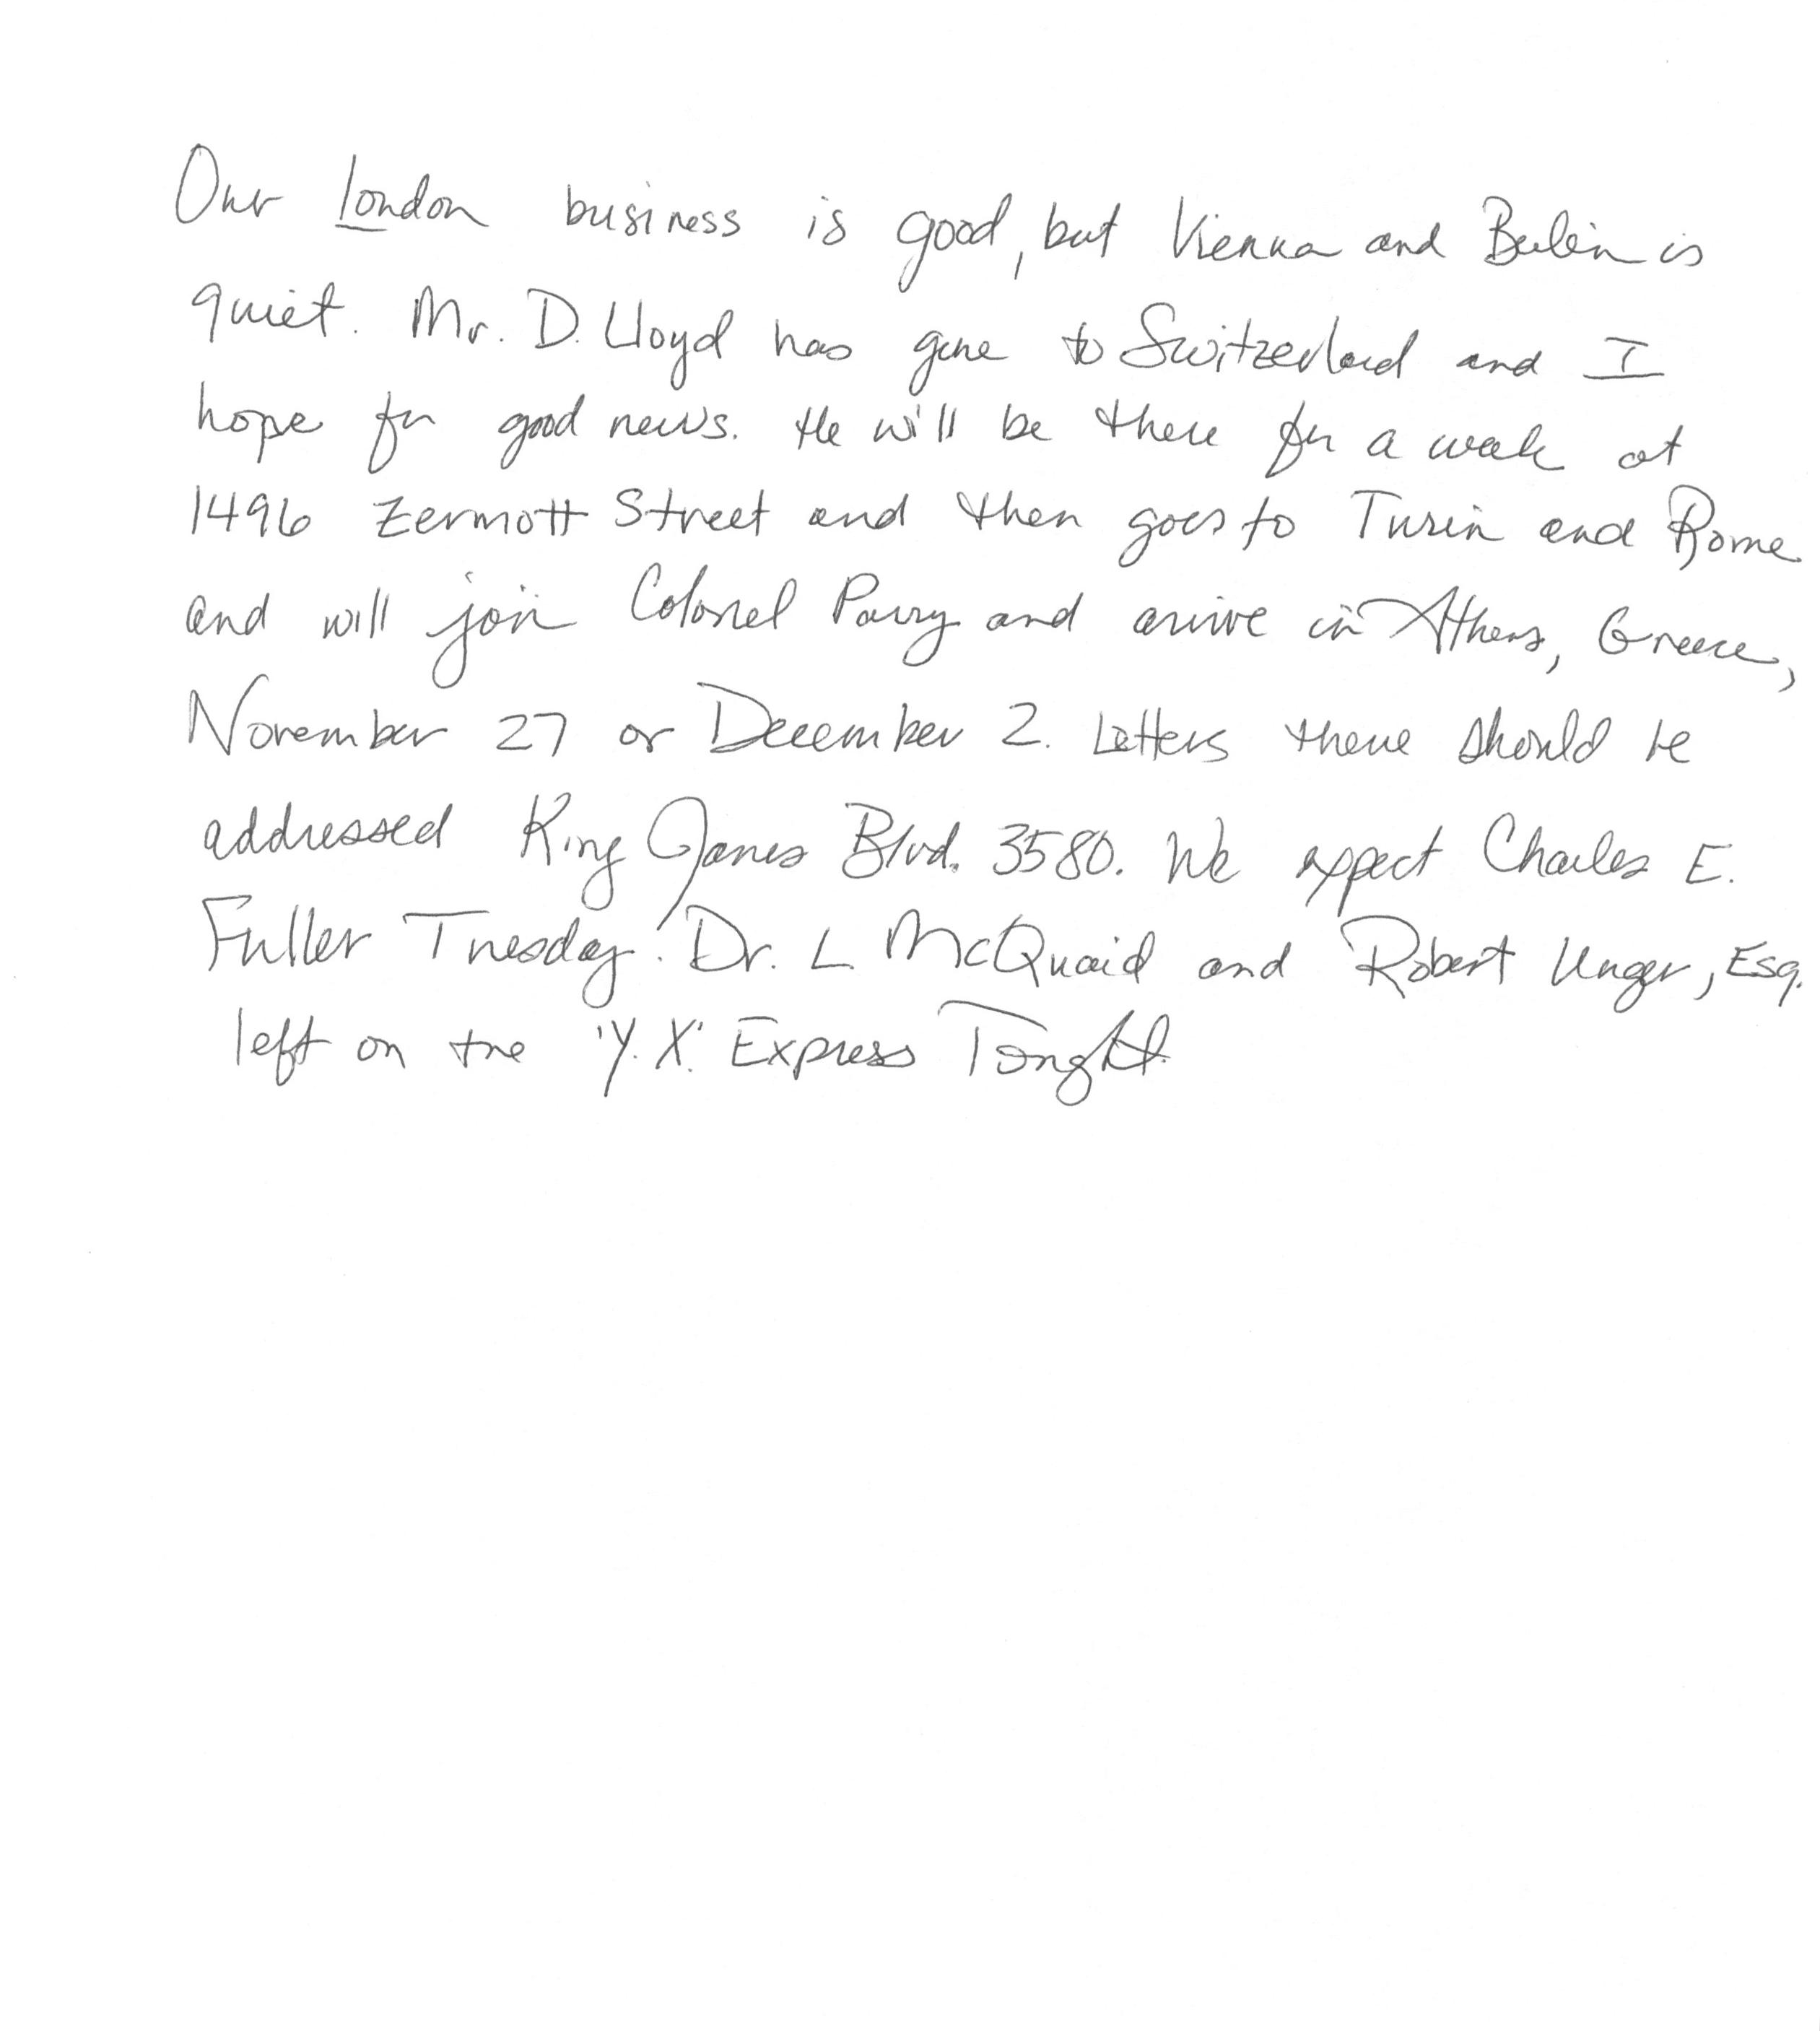 Our London business is good, but Vienna and Berlin is
quiet. Mr. D. Lloyd has gone to Switzerland and I
hope for good news. He will be there for a week at
1496 Zermott Street and then goes to Turin and Rome
and will join Colonel Parry and arrive in Athens, Greece,
November 27 or December 2. Letters there should be
addressed King James Blvd. 3580. We expect Charles E.
Fuller Tuesday. Dr. L. McQuaid and Robert Unger, Esq.
left on the 'Y.X.' Express Tonight.